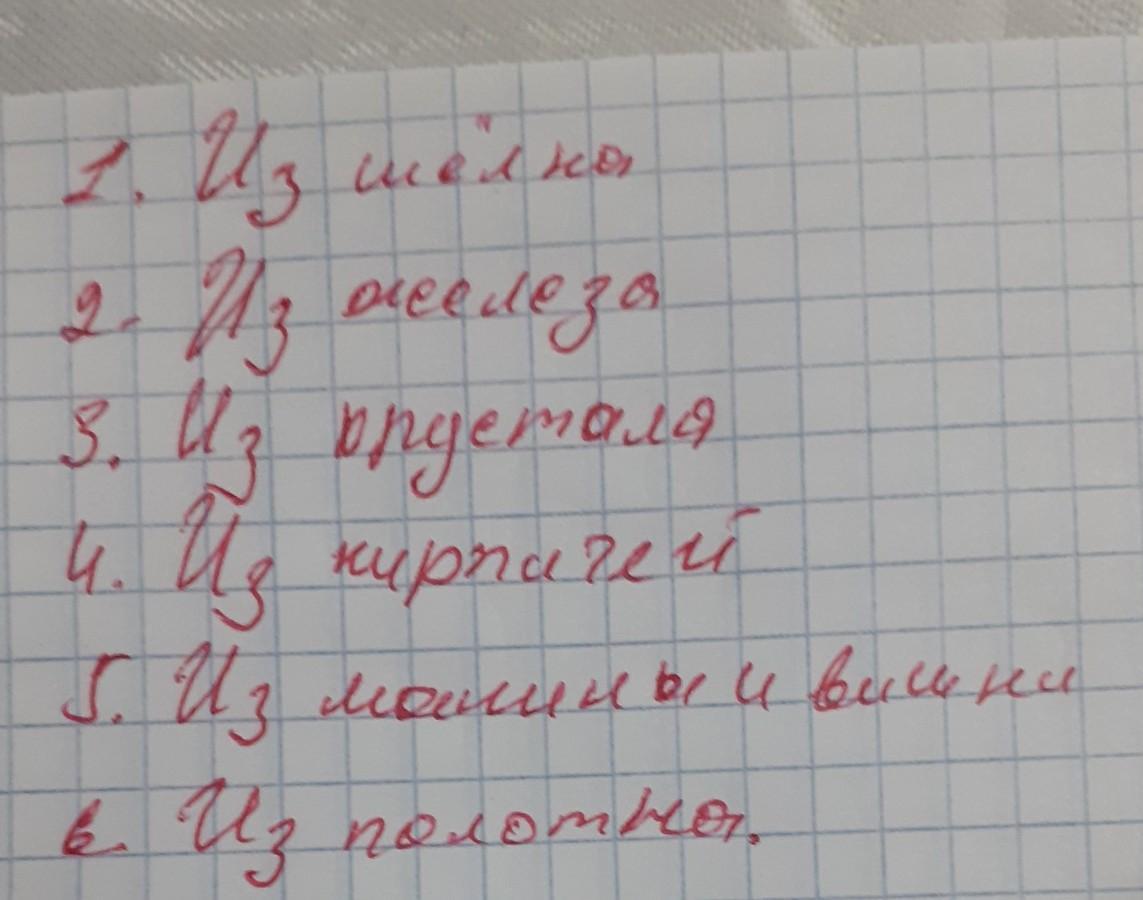 1. Из шёлка
2. Из железа
3. Из хрусталя
4. Из кирпичей
5. Из малины и вишни
6. Из полотна.